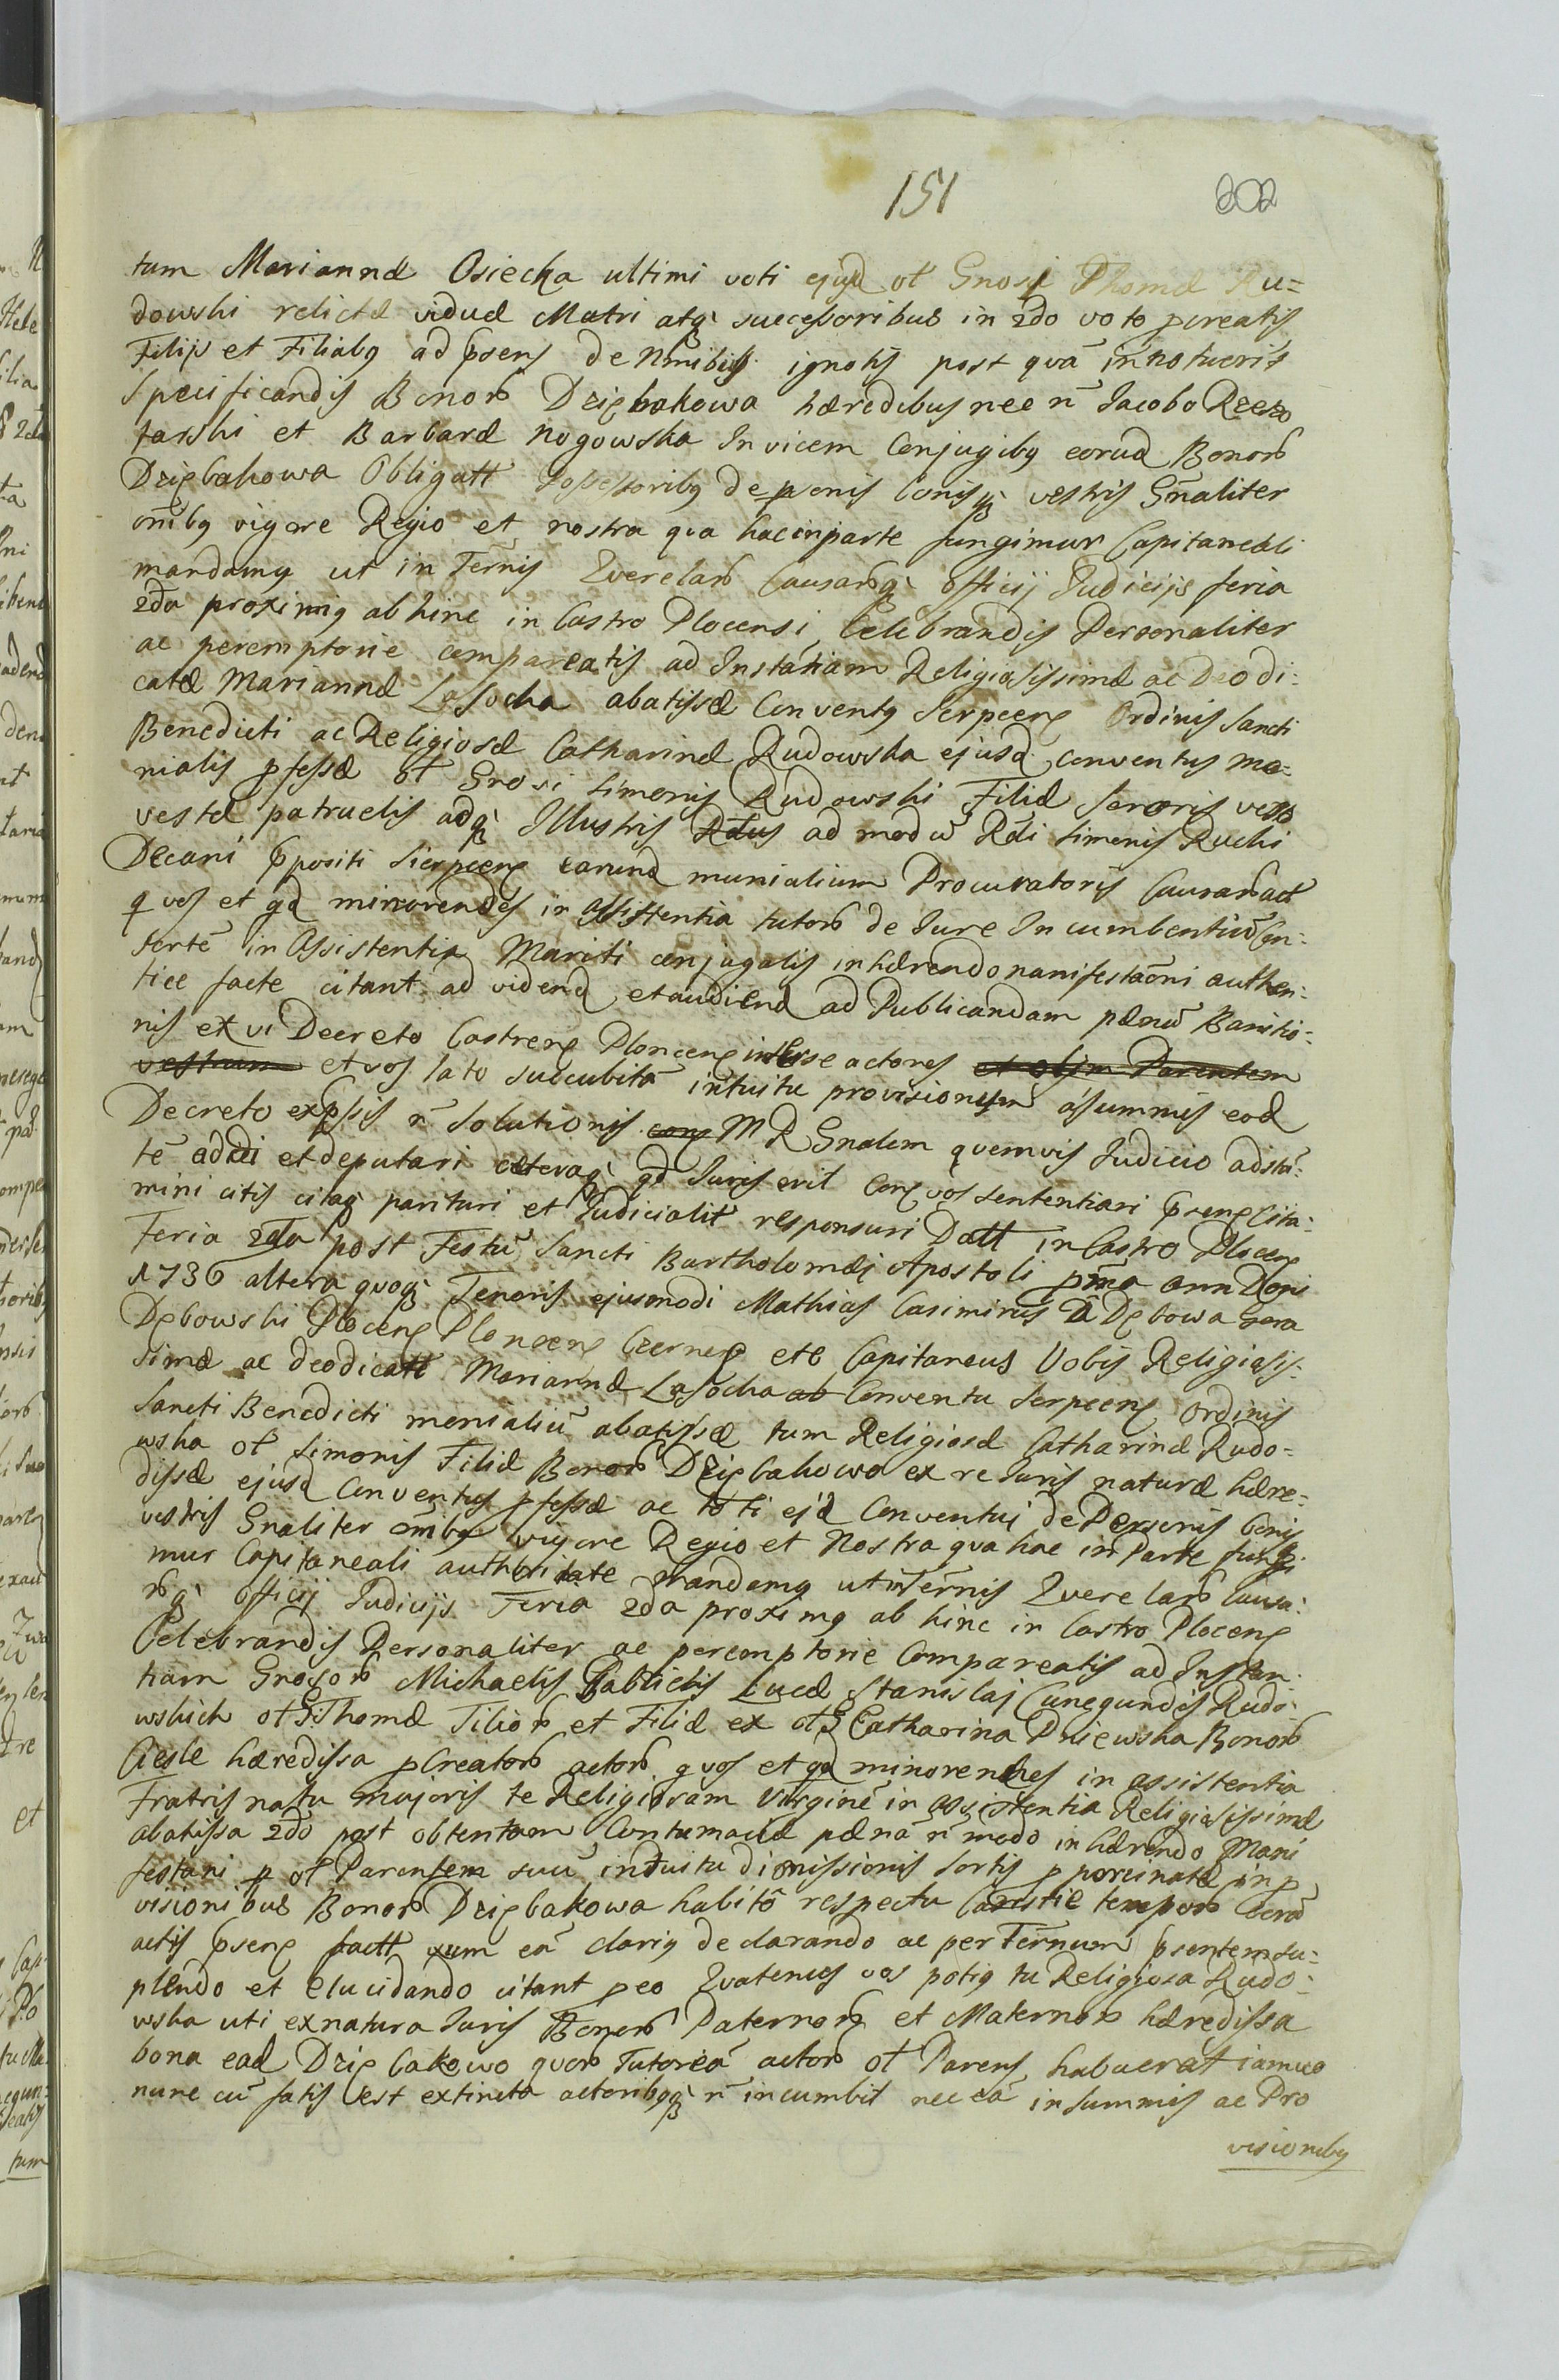 151 202
tum Mariannæ Osiecka ultimi voti ejusd ol Gnosi Thomæ Ru=
dowski relictæ viduæ Matri atq successoribus in 2do voto pcreatis
Filijs et Filiabq ad psens de Nminibus ignotis post quā innotuerit
Specificandis Bonor Dziębakowa hæredibus nec n̄ Jacobo Rzeszo
tarski et Barbaræ Nogowska Invicem Conjugibq eorud Bonor
Dziębakowa Obligatt Possessoribq de psonis bonisq vestris Gnaliter
omībq vigore Regio et nostra qua hac in parte fungimur Capitaneali
mandamq ut in Ternis Querelar Causarq officij Judicijs feria
2da proximq abhinc in Castro Plocensi Celebrandis Personaliter
ac peremptorie compareatis ad Instātiam Religiosissimæ ac Deo di=
catæ Mariannæ Lasocka abatissæ Conventq Serpcens Ordinis Sancti
Benedicti ac Religiosæ Catharinæ Rudowska ejusd conventus mo=
nialis pfessæ ol Grosi Simonis Rudowski Filiæ Sororis vero
vestræ patruelis adq Illustris Rdus ad modū Rdi Simonis Rucki
Decani Ppositi Sierpcens earund munialium Procuratoris Causar act
q vos et qd minorendes in assistentia tutor de Jure Incumbentiū Con=
sortē in Assistentia Mariti conjugalis inhærendo manifestaōni authen=
tice facte citant ad videnq et audiend ad Publicandam pænā Banitio=
nis ex vi Decreto Castrens Plonscens inter se actores et olim Parentem
vestrum et vos lato succubitā intuitu provisionum ā summis eod
Decreto expssis n̄ Solutionis cons MR Gnalem quemvis Judicio adstā=
tē addi et deputari cæteraq qd Juris erit Cons vos sententiari prens Cita=
mini citis citaq parituri et Judicialit responsuri Datt in Castro Plocens
Feria 2da post Festū Sancti Bartholomæi Apostoli pma ann Dni
1736 altera quoq Tenoris ejusmodi Mathias Casimirus a Dębowa Gora
Dębowski Plocens Plonscens Czerness etc Capitaneus Vobis Religiosis=
simæ ac deodicatæ Mariannæ Lasocka ab Conventu Serpcens Ordinis
Sancti Benedicti monialiū abatissæ tum Religiosæ Catharinæ Rudo=
wska ol Simonis Filiæ Bonor Dziębakowo ex re Juris naturæ hære=
dissæ ejusd Conventus pfessæ ac toti ejd Conventui de Personis bonisq
vestris Gnaliter omibq vigore Regio et Nostra qua hac in Parte fungi
mur Capitaneali authoritate mandamq ut in Ternis Querelar Causa=
rq officij Judicijs Feria 2da proximq ab hinc in Castro Plocens
Celebrandis Personaliter ac peremptorie Compareatis ad Instan=
tiam Grosor Michaelis Gablielis Lucæ Stanislaj Cunegundis Rudo=
wskich ol G Thomæ Filior et Filiæ ex ol G Catharina Pniewska Bonor
Ciesle hæredissa pcreator actor q vos et qd minorendes in assistentia
Fratris natu majoris te Religiosam Virginē in assistentia Religiosissimæ
abatissa 2do post obtentam Contumaciæ pænā n̄ modo inhærendo Mani
festaōni p ol Parentem suū intuitu dimissionis sortis pporcinatæ in p
visionibus Bonor Dziębakowa habitō respectu Caristiæ tempor corā
actis psens factt cum eā clariq declarando ac per Ternum psentem su=
plendo et Elucidando citant peo Quatenus vos potiq tu Religiosa Rudo=
wska uti ex natura Juris Bonor Paternor et Maternor hæredissa
bona ead Dziębakowo quor Tutoreā actor ol Parens habuerat iamuo
nunc cū fatis est extincta actoribqq n̄ incumbit nec eā in summis ac Pro
visionibq